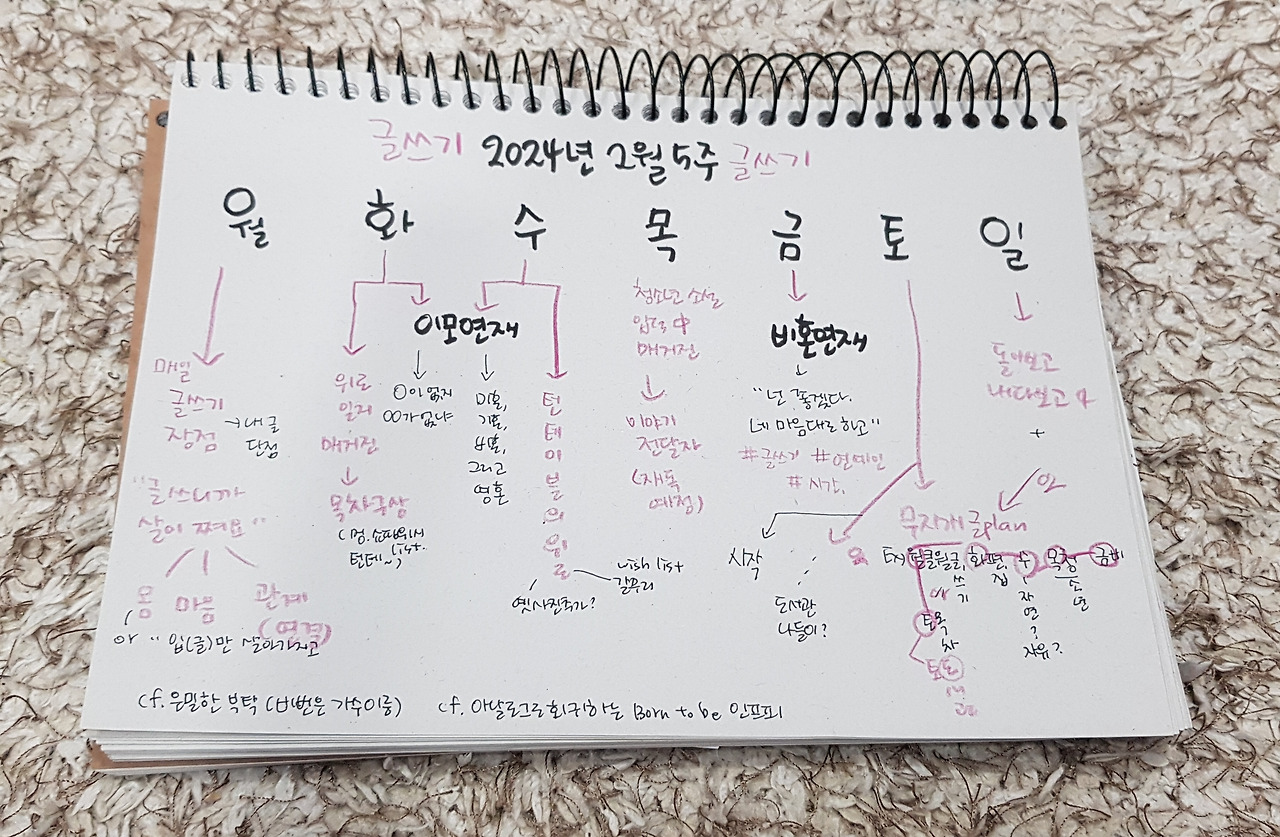 글쓰기 2024년 2월 5주 글쓰기
월 화 수 목 금 토 일
매일
글쓰기
장점
→ 내 글
단점
"글쓰니까
살이 쪄요"
몸 마음 관계
(연결)
or "입(글)만 살아가지고
위로
일지
매거진
목차구상
(멍.소파위시
list.
턴테~)
이모연재
○이 없지
○○가 없냐
미혼,
기혼,
그리고
영혼
턴
테
이
블
의
위
로
wish list
갈무리
옛사진추가?
청소년 소설
입력 中
매거진
이야기
전달자
(재독
예정)
비혼연재
네 마음대로 하고"
#글쓰기 #연예인
#시간,
시작
도서관
나들이?
돌아보고
내다보고
+
or
무지개 글plan
쓰
기
화편
집
수
자
연
?
자유?
목청
소
년
금비
토목
차
cf. 은밀한 부탁 (바번은 가수이름)
cf. 아날로그로 회귀하는 Born to be 인프피